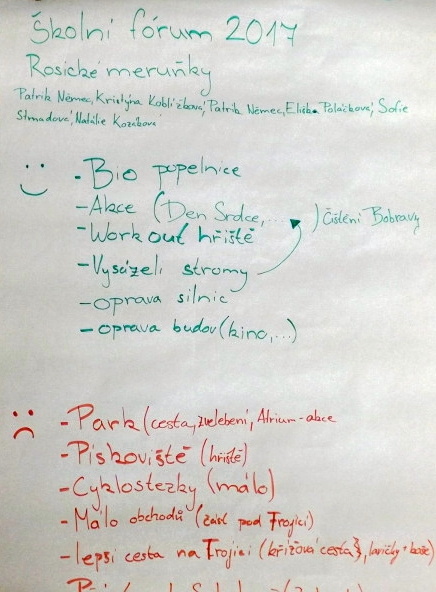 Školní fórum 2017
Rosické meruňky
Patrik Němec, Kristýna Koblížková, Patrik Němec, Eliška Poláčková, Sofie
Strnadová, Natálie Kozáková
- Bio popelnice
- Akce (Den Srdce,... ) Čištění Bobravy
- Work out hřiště
- Vysázeli stromy
- oprava silnic
- oprava budov (kino,...)
- Park (cesta, zvelebení, Atrium - akce
- Pískoviště (hřiště)
- Cyklostezky (málo)
- Málo obchodů (část pod Trojicí)
- lepší cesta na Trojici (křížová cesta), lavičky + koše)